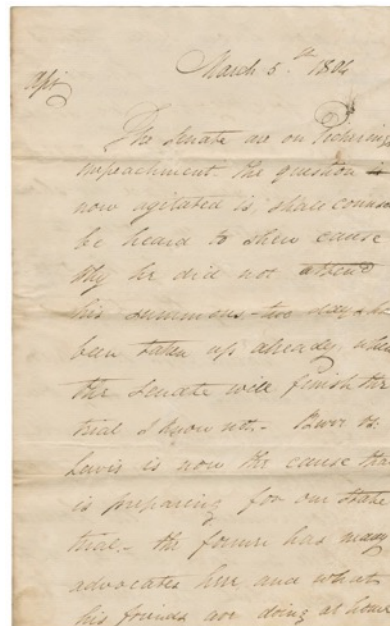 March 5.th 1804
The Senate are on Pickering
impeachment. the question is
now agitated is, shall counse
be heard to shew cause
why he did not attend
his summons - two days ha
been taken up already, when
the Senate will finish the
trial I know not. - Burr vs.
Lewis is now the cause tha
is preparing for our State
trial. - the former has many
advocates here and what
his friends are doing at home